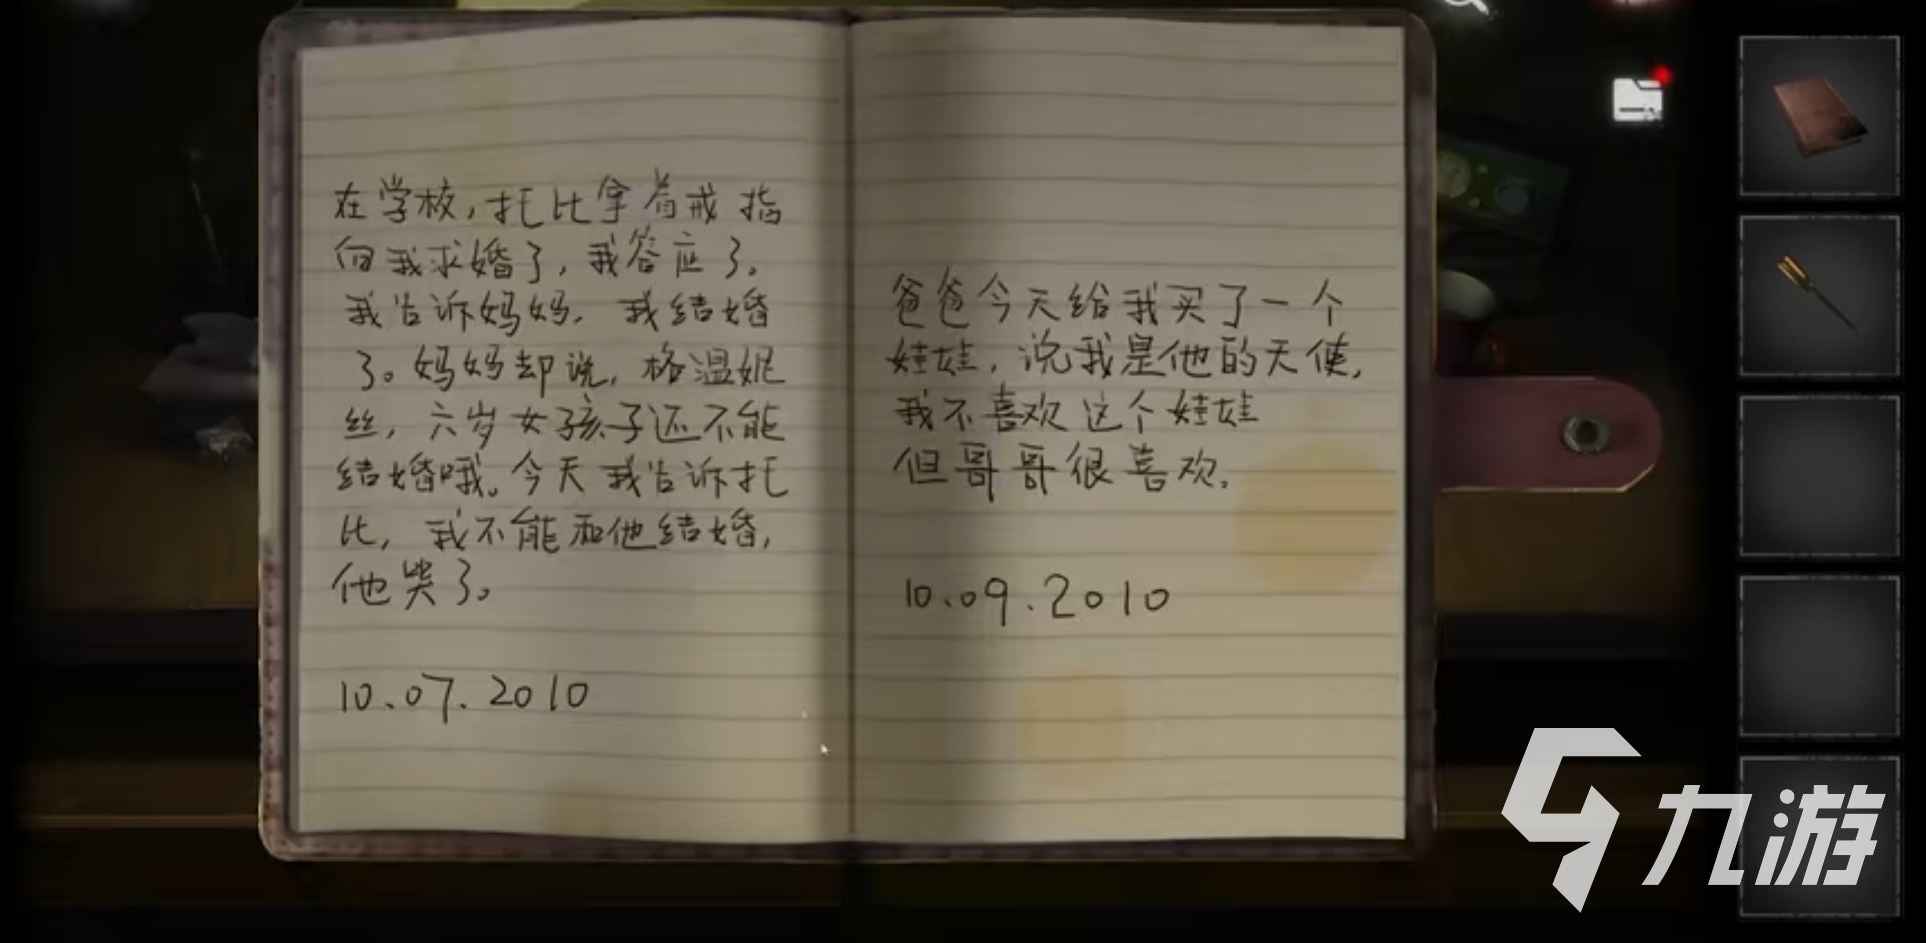 在学校，托比拿着戒指
向我求婚了，我答应了。
我告诉妈妈，我结婚
了。妈妈却说，格温妮
丝，六岁女孩子还不能
结婚哦。今天我告诉托
比，我不能和他结婚，
他哭了。
10.07.2010
爸爸今天给我买了一个
娃娃，说我是他的天使，
我不喜欢这个娃娃
但哥哥很喜欢。
10.09.2010
九游